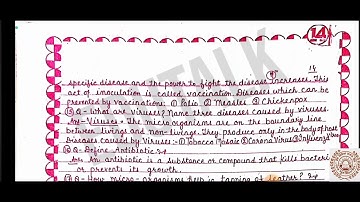 14
14
specific disease and the power to fight the disease increases. This
act of inoculation is called vaccination. Diseases which can be
prevented by vaccinations: ① Polio ② Measles ③ Chickenpox
Q- What are Viruses? Name three diseases caused by viruses.
Ans- Viruses - The micro organisms are on the boundary line
between livings and non-livings. They produce only in the body of host
Diseases caused by Viruses:- ① Tobacco Mosaic ② Corona Virus ③ Influenza Virus
Q- Define Antibiotic
Ans An antibiotic is a substance or compound that kills bacteria
or prevents its growth.
Q- How micro-organisms help in tanning of leather?
TALK